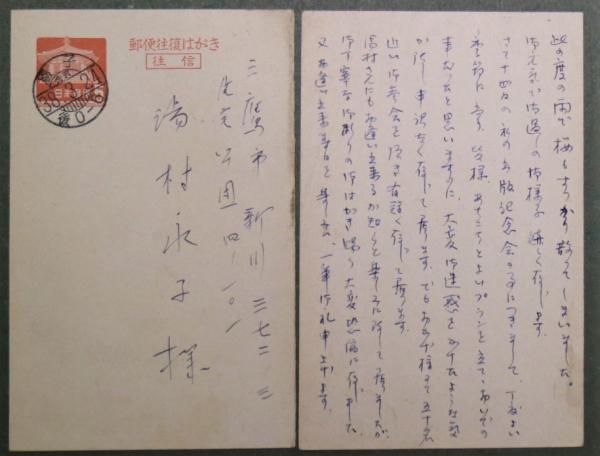 郵便往復はがき
往信
日本郵便
38
0-6
三鷹市新川三七二、三
住宅公団四ノ一〇一
湯村永子様
此の度の雨で桜もすっかり散ってしまいました。
御元気で御過しの御様子 嬉しく存じます。
さて十四日の私の出版記念会の事につきまして、丁度よい
季節に当り 皆様 あちこちとよいプランを立て、おいでの
事だったと思いますのに、大変御迷惑をかけたような気
が致し申訳なく存じて居ります。でもおかげ様で五十名
近い御参会を頂き有難く存じて居ります。
湯村さんにもお逢い出来るか知らと楽しみに致して居りましたが
御丁寧な御断りの御はがきを賜り大変恐縮に存じました
又お逢い出来る日を楽しみに、一筆御礼申上げます。